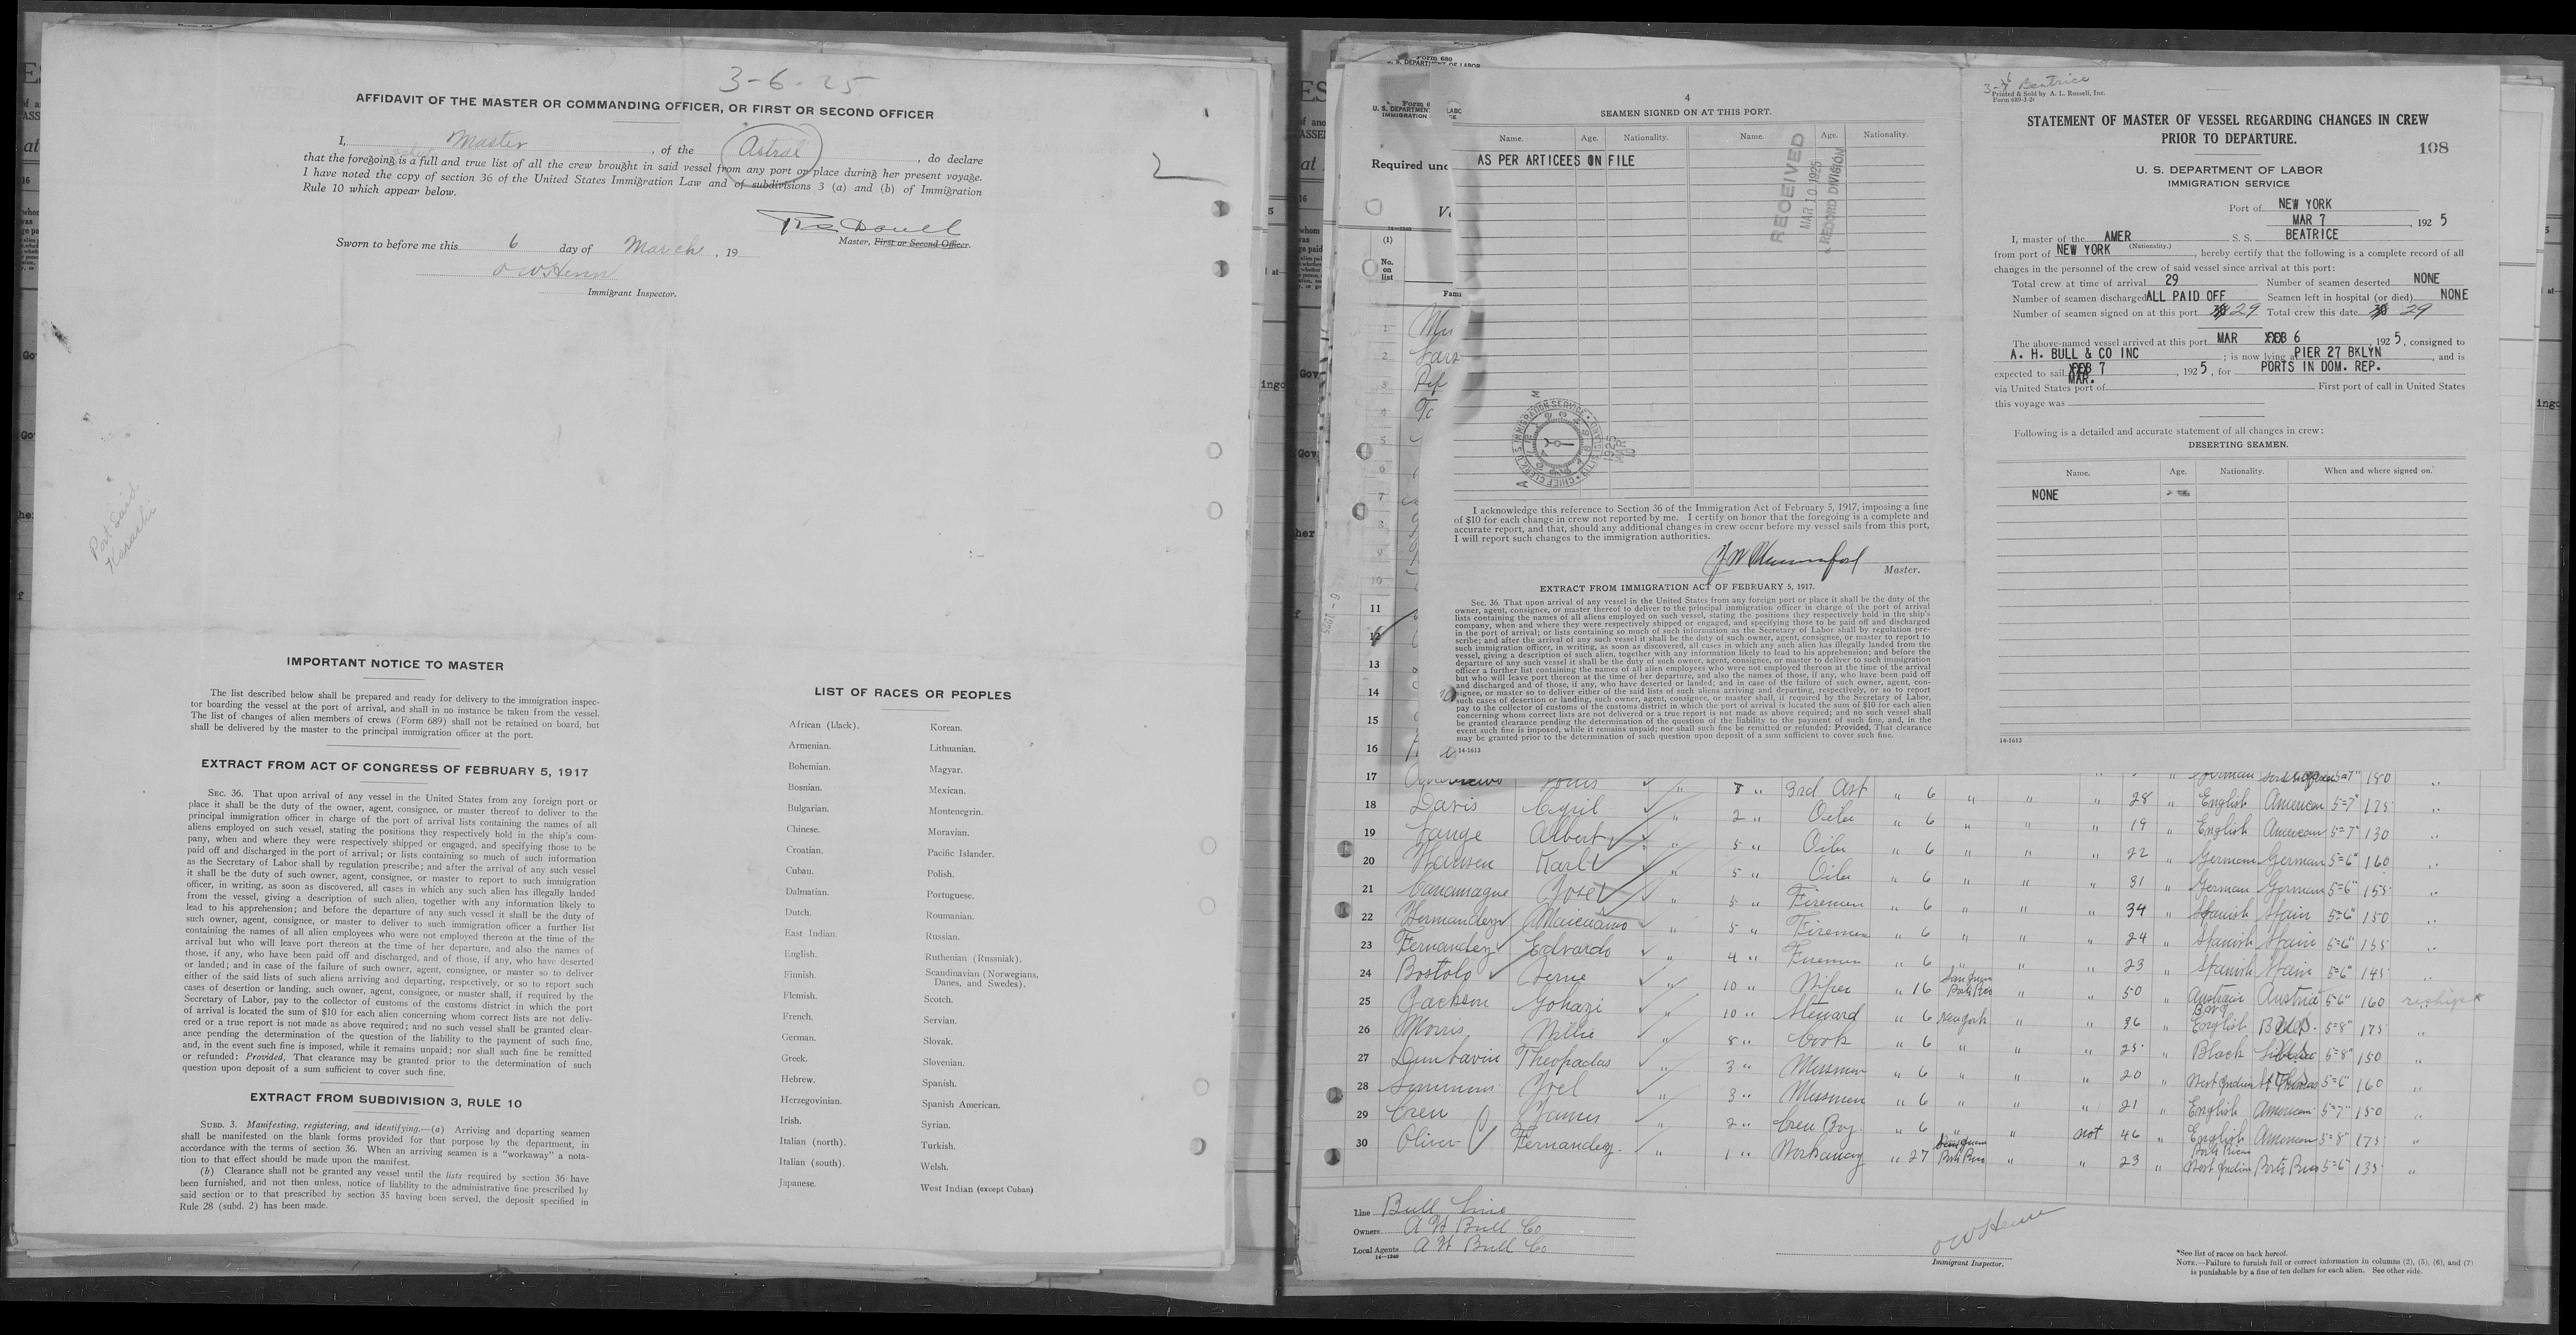 3-6-25
AFFIDAVIT OF THE MASTER OR COMMANDING OFFICER, OR FIRST OR SECOND OFFICER
I, Master, of the Astral, do declare
that the foregoing is a full and true list of all the crew brought in said vessel from any port or place during her present voyage.
I have noted the copy of section 36 of the United States Immigration Law and of subdivisions 3 (a) and (b) of Immigration
Rule 10 which appear below.
Master, First or Second Officer.
Sworn to before me this 6 day of March, 19
Immigrant Inspector.
2
Port Said
IMPORTANT NOTICE TO MASTER
The list described below shall be prepared and ready for delivery to the immigration inspec-
tor boarding the vessel at the port of arrival, and shall in no instance be taken from the vessel.
The list of changes of alien members of crews (Form 689) shall not be retained on board, but
shall be delivered by the master to the principal immigration officer at the port.
EXTRACT FROM ACT OF CONGRESS OF FEBRUARY 5, 1917
SEC. 36. That upon arrival of any vessel in the United States from any foreign port or
place it shall be the duty of the owner, agent, consignee, or master thereof to deliver to the
principal immigration officer in charge of the port of arrival lists containing the names of all
aliens employed on such vessel, stating the positions they respectively hold in the ship's com-
pany, when and where they were respectively shipped or engaged, and specifying those to be
paid off and discharged in the port of arrival; or lists containing so much of such information
as the Secretary of Labor shall by regulation prescribe; and after the arrival of any such vessel
it shall be the duty of such owner, agent, consignee, or master to report to such immigration
officer, in writing, as soon as discovered, all cases in which any such alien has illegally landed
from the vessel, giving a description of such alien, together with any information likely to
lead to his apprehension; and before the departure of any such vessel it shall be the duty of
such owner, agent, consignee, or master to deliver to such immigration officer a further list
containing the names of all alien employees who were not employed thereon at the time of the
arrival but who will leave port thereon at the time of her departure, and also the names of
those, if any, who have been paid off and discharged, and of those, if any, who have deserted
or landed; and in case of the failure of such owner, agent, consignee, or master so to deliver
either of the said lists of such aliens arriving and departing, respectively, or so to report such
cases of desertion or landing, such owner, agent, consignee, or master, shall, if required by the
Secretary of Labor, pay to the collector of customs of the customs district in which the port
of arrival is located the sum of $10 for each alien concerning whom correct lists are not deliv-
ered or a true report is not made as above required; and no such vessel shall be granted clear-
ance pending the determination of the question of the liability to the payment of such fine,
and, in the event such fine is imposed, while it remains unpaid; nor shall such fine be remitted
or refunded: Provided, That clearance may be granted prior to the determination of such
question upon deposit of a sum sufficient to cover such fine.
EXTRACT FROM SUBDIVISION 3, RULE 10
SUBD. 3. Manifesting, registering, and identifying.—(a) Arriving and departing seamen
shall be manifested on the blank forms provided for that purpose by the department, in
accordance with the terms of section 36. When an arriving seamen is a "workaway" a nota-
tion to that effect should be made upon the manifest.
(b) Clearance shall not be granted any vessel until the lists required by section 36 have
been furnished, and not then unless, notice of liability to the administrative fine prescribed by
said section or to that prescribed by section 35 having been served, the deposit specified in
Rule 28 (subd. 2) has been made.
LIST OF RACES OR PEOPLES
African (black).
Armenian.
Bohemian.
Bosnian.
Bulgarian.
Chinese.
Croatian.
Cuban.
Dalmatian.
Dutch.
East Indian.
English.
Finnish.
Flemish.
French.
German.
Greek.
Hebrew.
Herzegovinian.
Irish.
Italian (north).
Italian (south).
Japanese.
Korean.
Lithuanian.
Magyar.
Mexican.
Montenegrin.
Moravian.
Pacific Islander.
Polish.
Portuguese.
Roumanian.
Russian.
Ruthenian (Russniak).
Scandinavian (Norwegians,
Danes, and Swedes).
Scotch.
Servian.
Slovak.
Slovenian.
Spanish.
Spanish American.
Syrian.
Turkish.
Welsh.
West Indian (except Cuban)
Form 680
U. S. DEPARTMENT OF LABOR
IMMIGRATION
Required und
(1)
No.
on
list
4
SEAMEN SIGNED ON AT THIS PORT.
Name. Age. Nationality. Name. Age. Nationality.
AS PER ARTICEES ON FILE
RECEIVED
MAR 10 1925
RECORD DIVISION
CHIEF CLERK U.S. IMMIGRATION SERVICE
1925
MAR
10
I acknowledge this reference to Section 36 of the Immigration Act of February 5, 1917, imposing a fine
of $10 for each change in crew not reported by me. I certify on honor that the foregoing is a complete and
accurate report, and that, should any additional changes in crew occur before my vessel sails from this port,
I will report such changes to the immigration authorities.
Master.
EXTRACT FROM IMMIGRATION ACT OF FEBRUARY 5, 1917.
Sec. 36. That upon arrival of any vessel in the United States from any foreign port or place it shall be the duty of the
owner, agent, consignee, or master thereof to deliver to the principal immigration officer in charge of the port of arrival
lists containing the names of all aliens employed on such vessel, stating the positions they respectively hold in the ship's
company, when and where they were respectively shipped or engaged, and specifying those to be paid off and discharged
in the port of arrival; or lists containing so much of such information as the Secretary of Labor shall by regulation pre-
scribe; and after the arrival of any such vessel it shall be the duty of such owner, agent, consignee, or master to report to
such immigration officer, in writing, as soon as discovered, all cases in which any such alien has illegally landed from the
vessel, giving a description of such alien, together with any information likely to lead to his apprehension; and before the
departure of any such vessel it shall be the duty of such owner, agent, consignee, or master to deliver to such immigration
officer a further list containing the names of all alien employees who were not employed thereon at the time of the arrival
but who will leave port thereon at the time of her departure, and also the names of those, if any, who have been paid off
and discharged and of those, if any, who have deserted or landed; and in case of the failure of such owner, agent, con-
signee, or master so to deliver either of the said lists of such aliens arriving and departing, respectively, or so to report
such cases of desertion or landing, such owner, agent, consignee, or master, shall, if required by the Secretary of Labor,
pay to the collector of customs of the customs district in which the port of arrival is located the sum of $10 for each alien
concerning whom correct lists are not delivered or a true report is not made as above required; and no such vessel shall
be granted clearance pending the determination of the question of the liability to the payment of such fine, and, in the
event such fine is imposed, while it remains unpaid; nor shall such fine be remitted or refunded: Provided, That clearance
may be granted prior to the determination of such question upon deposit of a sum sufficient to cover such fine.
14-1613
Beatrice
Printed & Sold by A. L. Russell, Inc.
Form 689-3-20
STATEMENT OF MASTER OF VESSEL REGARDING CHANGES IN CREW
PRIOR TO DEPARTURE.
108
U. S. DEPARTMENT OF LABOR
IMMIGRATION SERVICE
Port of NEW YORK
MAR 7, 1925
I, master of the AMER (Nationality.) S. S. BEATRICE
from port of NEW YORK, hereby certify that the following is a complete record of all
changes in the personnel of the crew of said vessel since arrival at this port:
Total crew at time of arrival 29 Number of seamen deserted NONE
Number of seamen discharged ALL PAID OFF Seamen left in hospital (or died) NONE
Number of seamen signed on at this port 29 Total crew this date 29
The above-named vessel arrived at this port MAR 6 1925, consigned to
A. H. BULL & CO INC; is now lying at PIER 27 BKLYN, and is
expected to sail MAR. 7, 1925, for PORTS IN DOM. REP.
via United States port of First port of call in United States
this voyage was
Following is a detailed and accurate statement of all changes in crew:
DESERTING SEAMEN.
Name. Age. Nationality. When and where signed on.
NONE
14-1613
11
12
13
14
15
16
17 Louis 8 " 3rd Ast " 6 German 5=7" 180
18 Davis Cyril 2 " Oiler " 6 28 English American 5=7" 175
19 Lange Albert 5 " Oiler " 6 19 English American 5=7" 130
20 Hansen Karl 5 " Oiler " 6 22 German German 5=6" 160
21 Canamague Jose 5 " Firemen " 6 31 German German 5=6" 155
22 Hernandez 5 " Firemen " 6 34 Spanish Spain 5=6" 150
23 Fernandez Edvardo 4 " Firemen " 6 24 Spanish Spain 5=6" 155
24 Bostolo 10 " Wiper " 16 San Juan Porto Rico 23 Spanish Spain 5=6" 145
25 Jackson 10 " Steward " 6 New York 50 Austria 5=6" 160
26 Morris Willie 8 " Cook " 6 36 English 5=8" 175
27 Theopadas 3 " Messman " 6 25 Black 5=8" 150
28 Simmons Joel 3 " Messman " 6 20 West Indian St Thomas 5=6" 160
29 James 2 " " 6 21 English American 5=7" 150
30 Oliver Fernandez 1 " Workaway " 27 San Juan Porto Rico not 46 English American 5=8" 175
23 West Indian Porto Rico 5=6" 135
Line Bull Line
Owners A H Bull Co
Local Agents A H Bull Co
14-1240
Immigrant Inspector.
*See list of races on back hereof.
NOTE.—Failure to furnish full or correct information in columns (2), (5), (6), and (7)
is punishable by a fine of ten dollars for each alien. See other side.